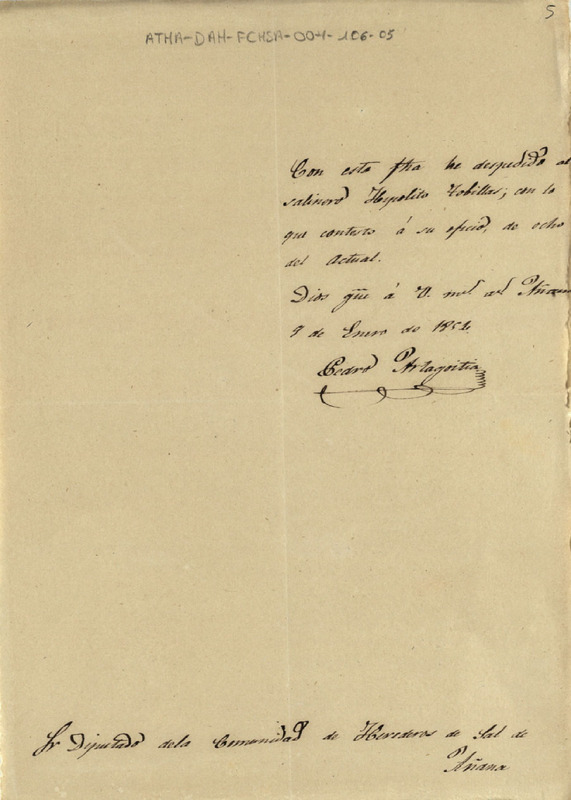 5
ATHA-DAH-FCHSA-004-106-05
Con esta fha he despedido al
salinero Hipolito Tobillas; con lo
que contesto á su oficio de ocho
del Actual.
Dios gue á V. ms as Añana
9 de Enero de 1852.
Pedro Artagoitia
Sr Diputado de la Comunidad de Herederos de Sal de
Añana